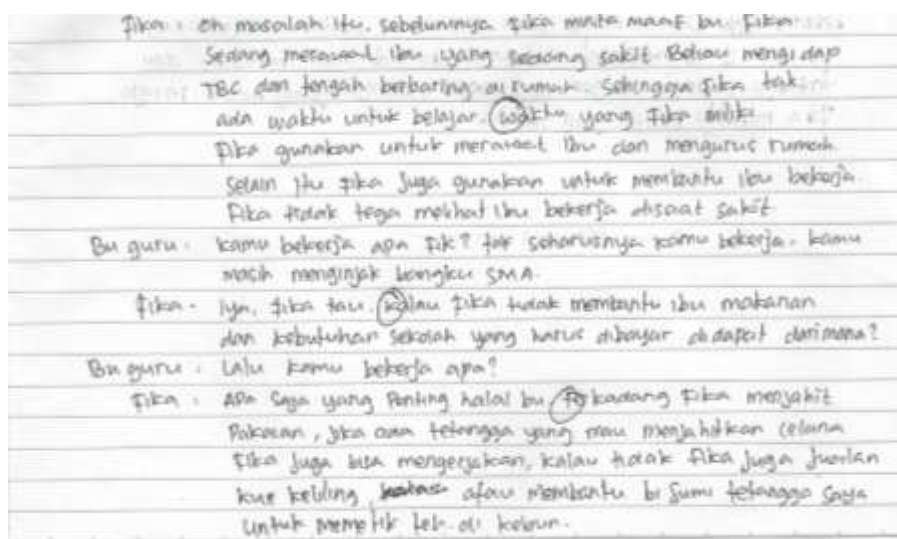 Fika : Oh masalah itu, sebelumnya Fika minta maaf bu. Fika
Sedang merawat Ibu yang sedang sakit. Beliau mengidap
TBC dan tengah berbaring di rumah. Sehingga Fika tak
ada waktu untuk belajar. waktu yang Fika miliki
Fika gunakan untuk merawat Ibu dan mengurus rumah.
Selain itu Fika juga gunakan untuk membantu ibu bekerja.
Fika tidak tega melihat ibu bekerja disaat sakit
Bu guru : kamu bekerja apa Fik? tak seharusnya kamu bekerja. kamu
masih menginjak bangku SMA.
Fika : Iya, Fika tau kalau Fika tidak membantu ibu makanan
dan kebutuhan sekolah yang harus dibayar di dapat darimana?
Bu guru : Lalu kamu bekerja apa?
Fika : APa Saja yang Penting halal bu kadang Fika menjahit
Pakaian, jika ada tetangga yang mau menjahitkan celana
Fika juga bisa mengerjakan, kalau tidak Fika juga jualan
kue keliling atau membantu bi Sumi tetangga saya
Untuk memetik teh di kebun.